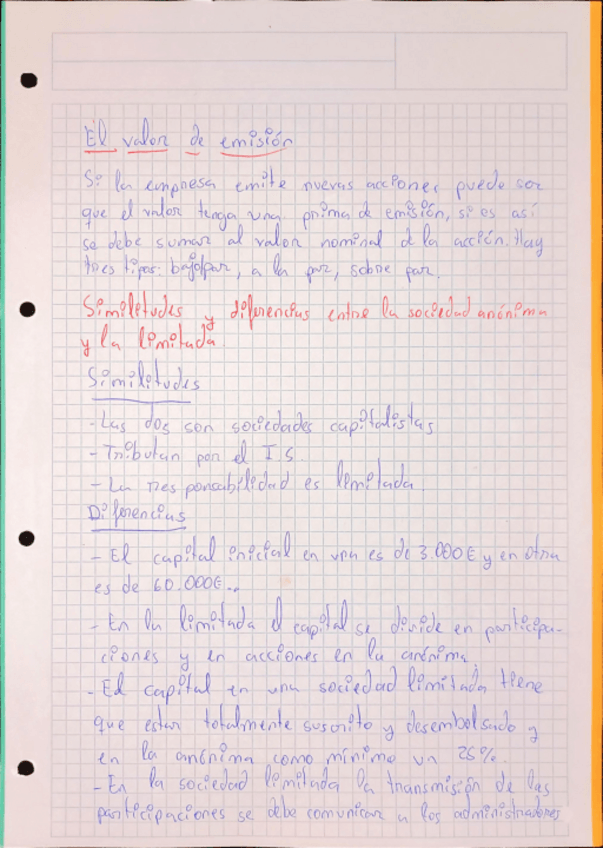 El valor de emisión
Si la empresa emite nuevas acciones puede ser
que el valor tenga una prima de emisión, si es así
se debe sumar al valor nominal d la acción. Hay
tres tipos: bajo par, a la par, sobre par.
Similitudes y diferencias entre la sociedad anónima
y la limitada.
Similitudes
- Las dos son sociedades capitalistas
- Tributan por el I S.
- La responsabilidad es limitada.
Diferencias
- El capital inicial en una es de 3.000€ y en otra
es de 60.000€..
- En la limitada el capital se divide en participa-
ciones y en acciones en la anónima.
- El capital en una sociedad limitada tiene
que estar totalmente suscrito y desembolsado y
en la anónima como mínimo un 25%.
- En la sociedad limitada la transmisión de las
participaciones se debe comunicar a los administradores